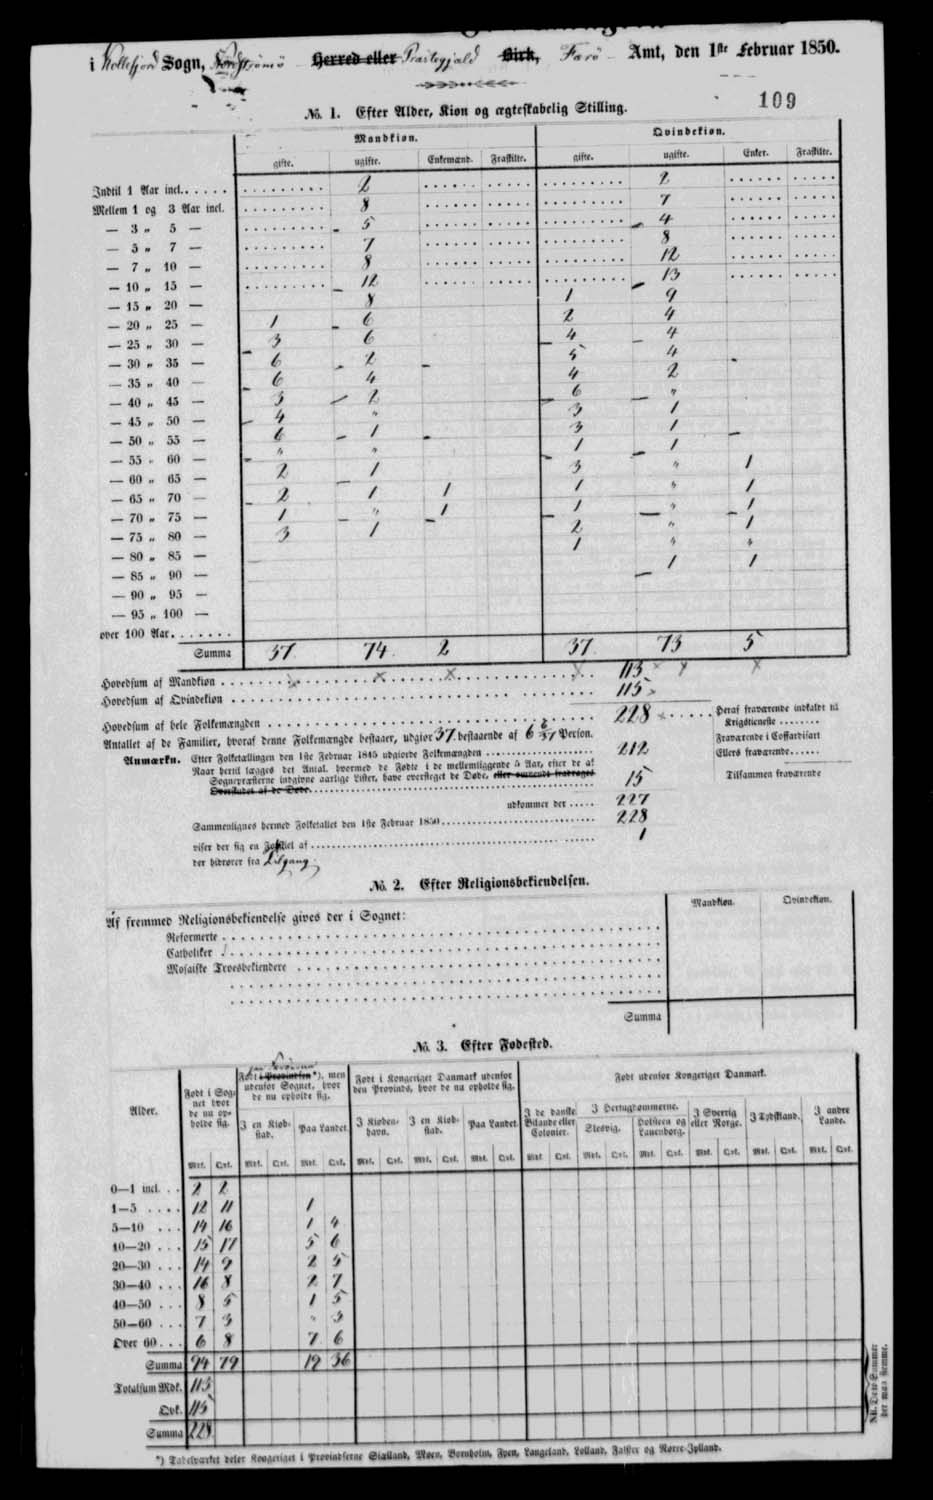 i Kollefjord Sogn, Nordstrømø Herred eller Præstegjeld Birk, Færø Amt, den 1ste Februar 1850.
109
No. 1. Efter Alder, Kiøn og ægteskabelig Stilling.
Mandkiøn. Qvindekiøn.
gifte. ugifte. Enkemænd. Fraskilte. gifte. ugifte. Enker. Fraskilte.
Indtil 1 Aar incl. . . . . . 2 2
Mellem 1 og 3 Aar incl. 8 7
— 3 „ 5 — 5 4
— 5 „ 7 — 7 8
— 7 „ 10 — 8 12
— 10 „ 15 — 12 13
— 15 „ 20 — 8 1 9
— 20 „ 25 — 1 6 2 4
— 25 „ 30 — 3 6 4 4
— 30 „ 35 — 6 2 5 4
— 35 „ 40 — 6 4 4 2
— 40 „ 45 — 3 2 6 „
— 45 „ 50 — 4 „ 3 1
— 50 „ 55 — 6 1 3 1
— 55 „ 60 — „ „ 1 1
— 60 „ 65 — 2 1 3 „ 1
— 65 „ 70 — 2 1 1 1 „ 1
— 70 „ 75 — 1 „ 1 1 „ 1
— 75 „ 80 — 3 1 2 „ 1
— 80 „ 85 — 1 „ „
— 85 „ 90 — 1 1
— 90 „ 95 —
— 95 „ 100 —
over 100 Aar. . . . . . .
Summa 37. 74. 2 37. 73 5
Hovedsum af Mandkiøn . . . 113
Hovedsum af Qvindekiøn . . . 115
Hovedsum af hele Folkemængden . . . 228
Heraf fraværende indkaldt til Krigstieneste . . . . . . . .
Antallet af de Familier, hvoraf denne Folkemængde bestaaer, udgiør 37. bestaaende af 6 6/37 Person.
Fraværende i Coffardifart
Anmærkn. Efter Folketællingen den 1ste Februar 1845 udgiorde Folkemængden . . . 212
Ellers fraværende. . . . . .
Naar hertil lægges det Antal, hvormed de Fødte i de mellemliggende 5 Aar, efter de af
Sognepræsterne indgivne aarlige Lister, have oversteget de Døde, eller omvendt fradrages
Overskudet af de Døde. . . . 15
Tilsammen fraværende
udkommer der . . . . . 227
Sammenlignes hermed Folketallet den 1ste Februar 1850 . . . 228
viser der sig en Forskiel af . . . 1
der hidrører fra Tilgang.
No. 2. Efter Religionsbekiendelsen.
Mandkiøn. Qvindekiøn.
Af fremmed Religionsbekiendelse gives der i Sognet:
Reformerte . . .
Catholiker . . .
Mosaiske Troesbekiendere . . .
Summa
No. 3. Efter Fødested.
Alder.
Født i Sognet hvor de nu opholde sig.
Født i Provindsen *), men udenfor Sognet, hvor de nu opholde sig.
Født i Kongeriget Danmark udenfor den Provinds, hvor de nu opholde sig.
Født udenfor Kongeriget Danmark.
I en Kiøbstad. Paa Landet. I Kiøbenhavn. I en Kiøbstad. Paa Landet. I de danske Bilande eller Colonier. I Hertugdømmerne. Slesvig. Holsteen og Lauenborg. I Sverrig eller Norge. I Tydskland. I andre Lande.
Mdk. Qvk. Mdk. Qvk. Mdk. Qvk. Mdk. Qvk. Mdk. Qvk. Mdk. Qvk. Mdk. Qvk. Mdk. Qvk. Mdk. Qvk. Mdk. Qvk. Mdk. Qvk. Mdk. Qvk.
0—1 incl. . . 2 2
1—5 . . . . 12 11 1
5—10 . . . 14 16 1 4
10—20 . . . 15 17 5 6
20—30 . . . 14 9 2 5
30—40 . . . 16 8 2 7
40—50 . . . 8 5 1 5
50—60 . . . 7 3 „ 3
Over 60 . . . 6 8 7 6
Summa 94 79 19 36
Totalsum Mdk. 113
Qvk. 115
Summa 228
NB. Disse Summer her maa stemme.
*) Tabelværket deler Kongeriget i Provindserne Siælland, Møen, Bornholm, Fyen, Langeland, Lolland, Falster og Nørre-Jylland.